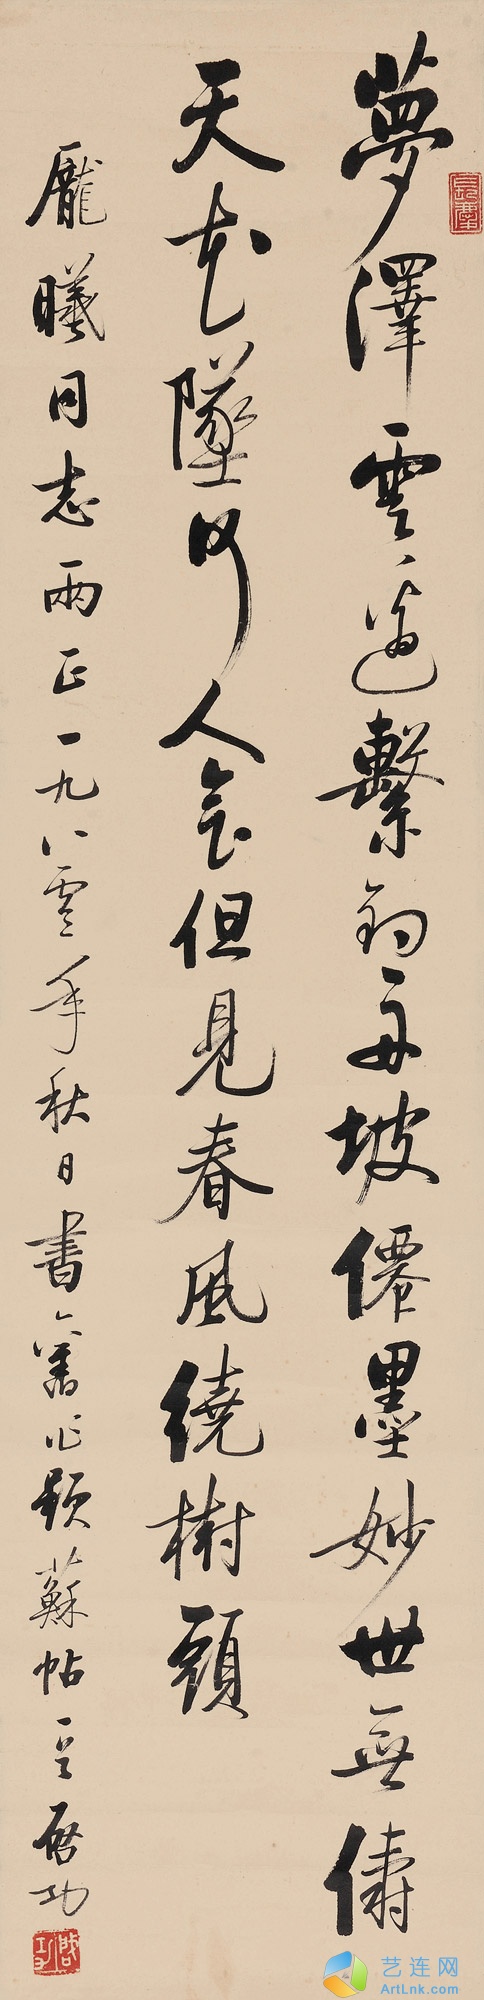 夢澤雲邊繫釣舟坡僊墨妙世無儔
天花墜處何人會但見春風繞樹頭
龐曦同志兩正一九八零年秋日書舊作題蘇帖之一啟功
啟功
艺连网
ArtLnk.com